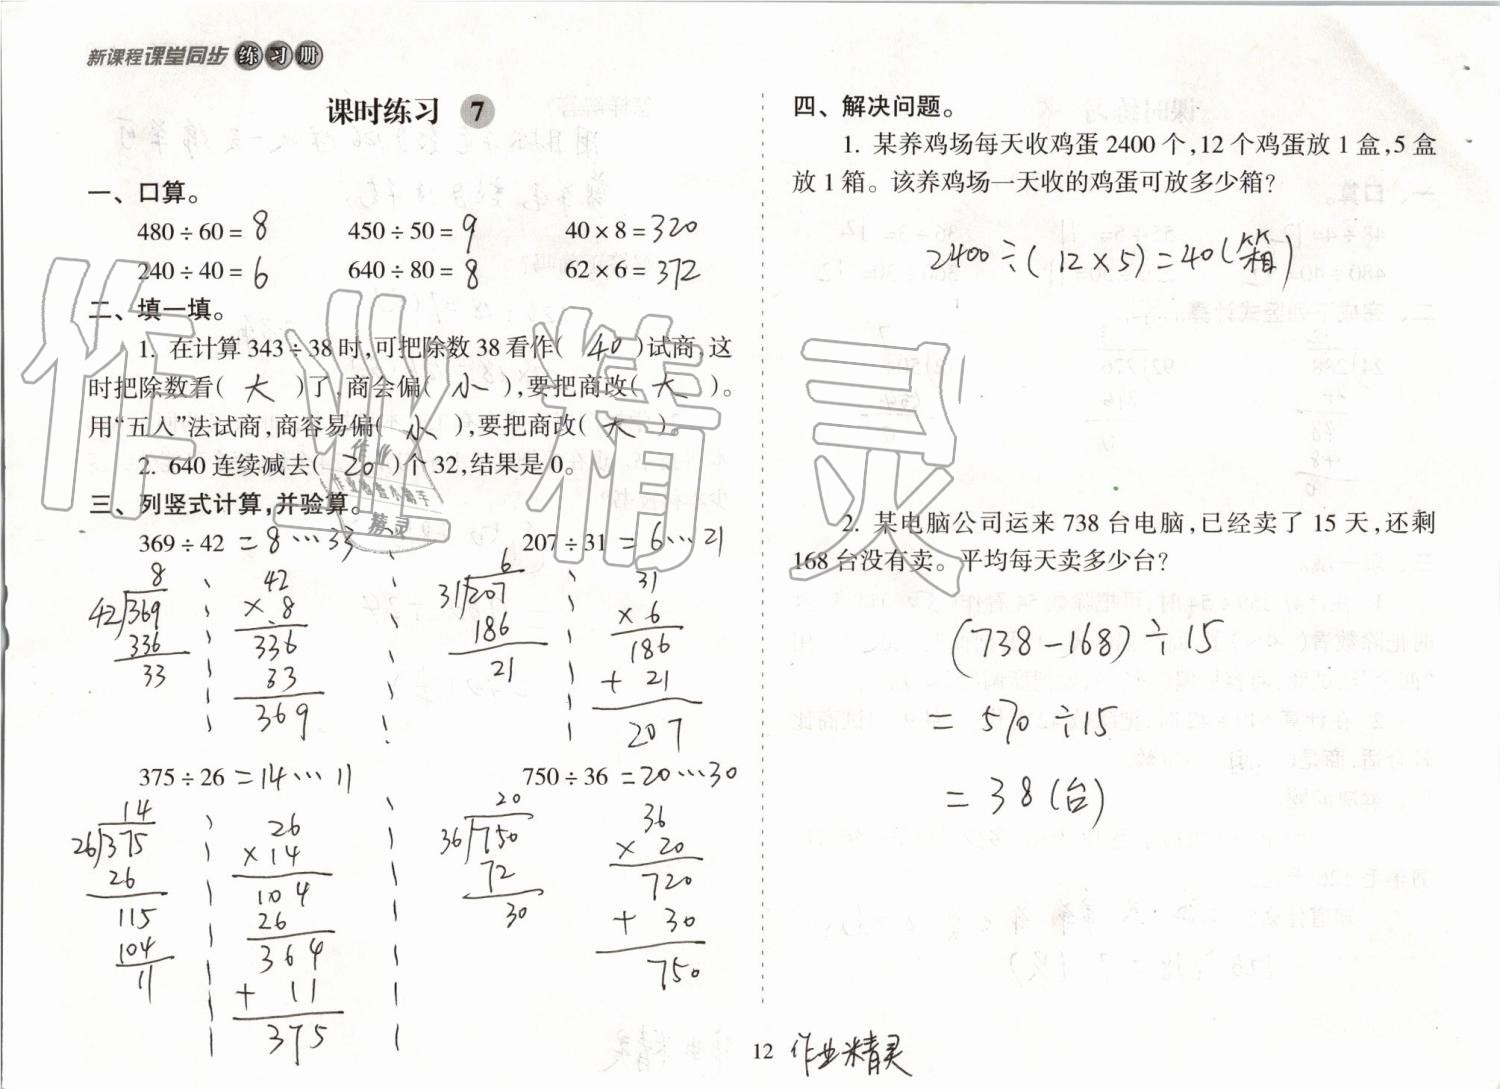 新课程课堂同步练习册
课时练习 7
一、口算。
480÷60=8 450÷50=9 40×8=320
240÷40=6 640÷80=8 62×6=372
二、填一填。
1. 在计算343÷38时,可把除数38看作( 40 )试商,这
时把除数看( 大 )了,商会偏( 小 ),要把商改( 大 )。
用“五入”法试商,商容易偏( 小 ),要把商改( 大 )。
2. 640连续减去( 20 )个32,结果是0。
三、列竖式计算,并验算。
369÷42=8…33 207÷31=6…21
8 42 6 31
42 369 ×8 31 207 ×6
336 336 186 186
33 33 21 +21
369 207
375÷26=14…11 750÷36=20…30
14 26 20 36
26 375 ×14 36 750 ×20
26 104 72 720
115 26 30 +30
104 364 750
11 +11
375
四、解决问题。
1. 某养鸡场每天收鸡蛋2400个,12个鸡蛋放1盒,5盒
放1箱。该养鸡场一天收的鸡蛋可放多少箱?
2400÷(12×5)=40(箱)
2. 某电脑公司运来738台电脑,已经卖了15天,还剩
168台没有卖。平均每天卖多少台?
(738-168)÷15
=570÷15
=38(台)
12 作业精灵
作业精灵
作业
作业检查小助手
精灵